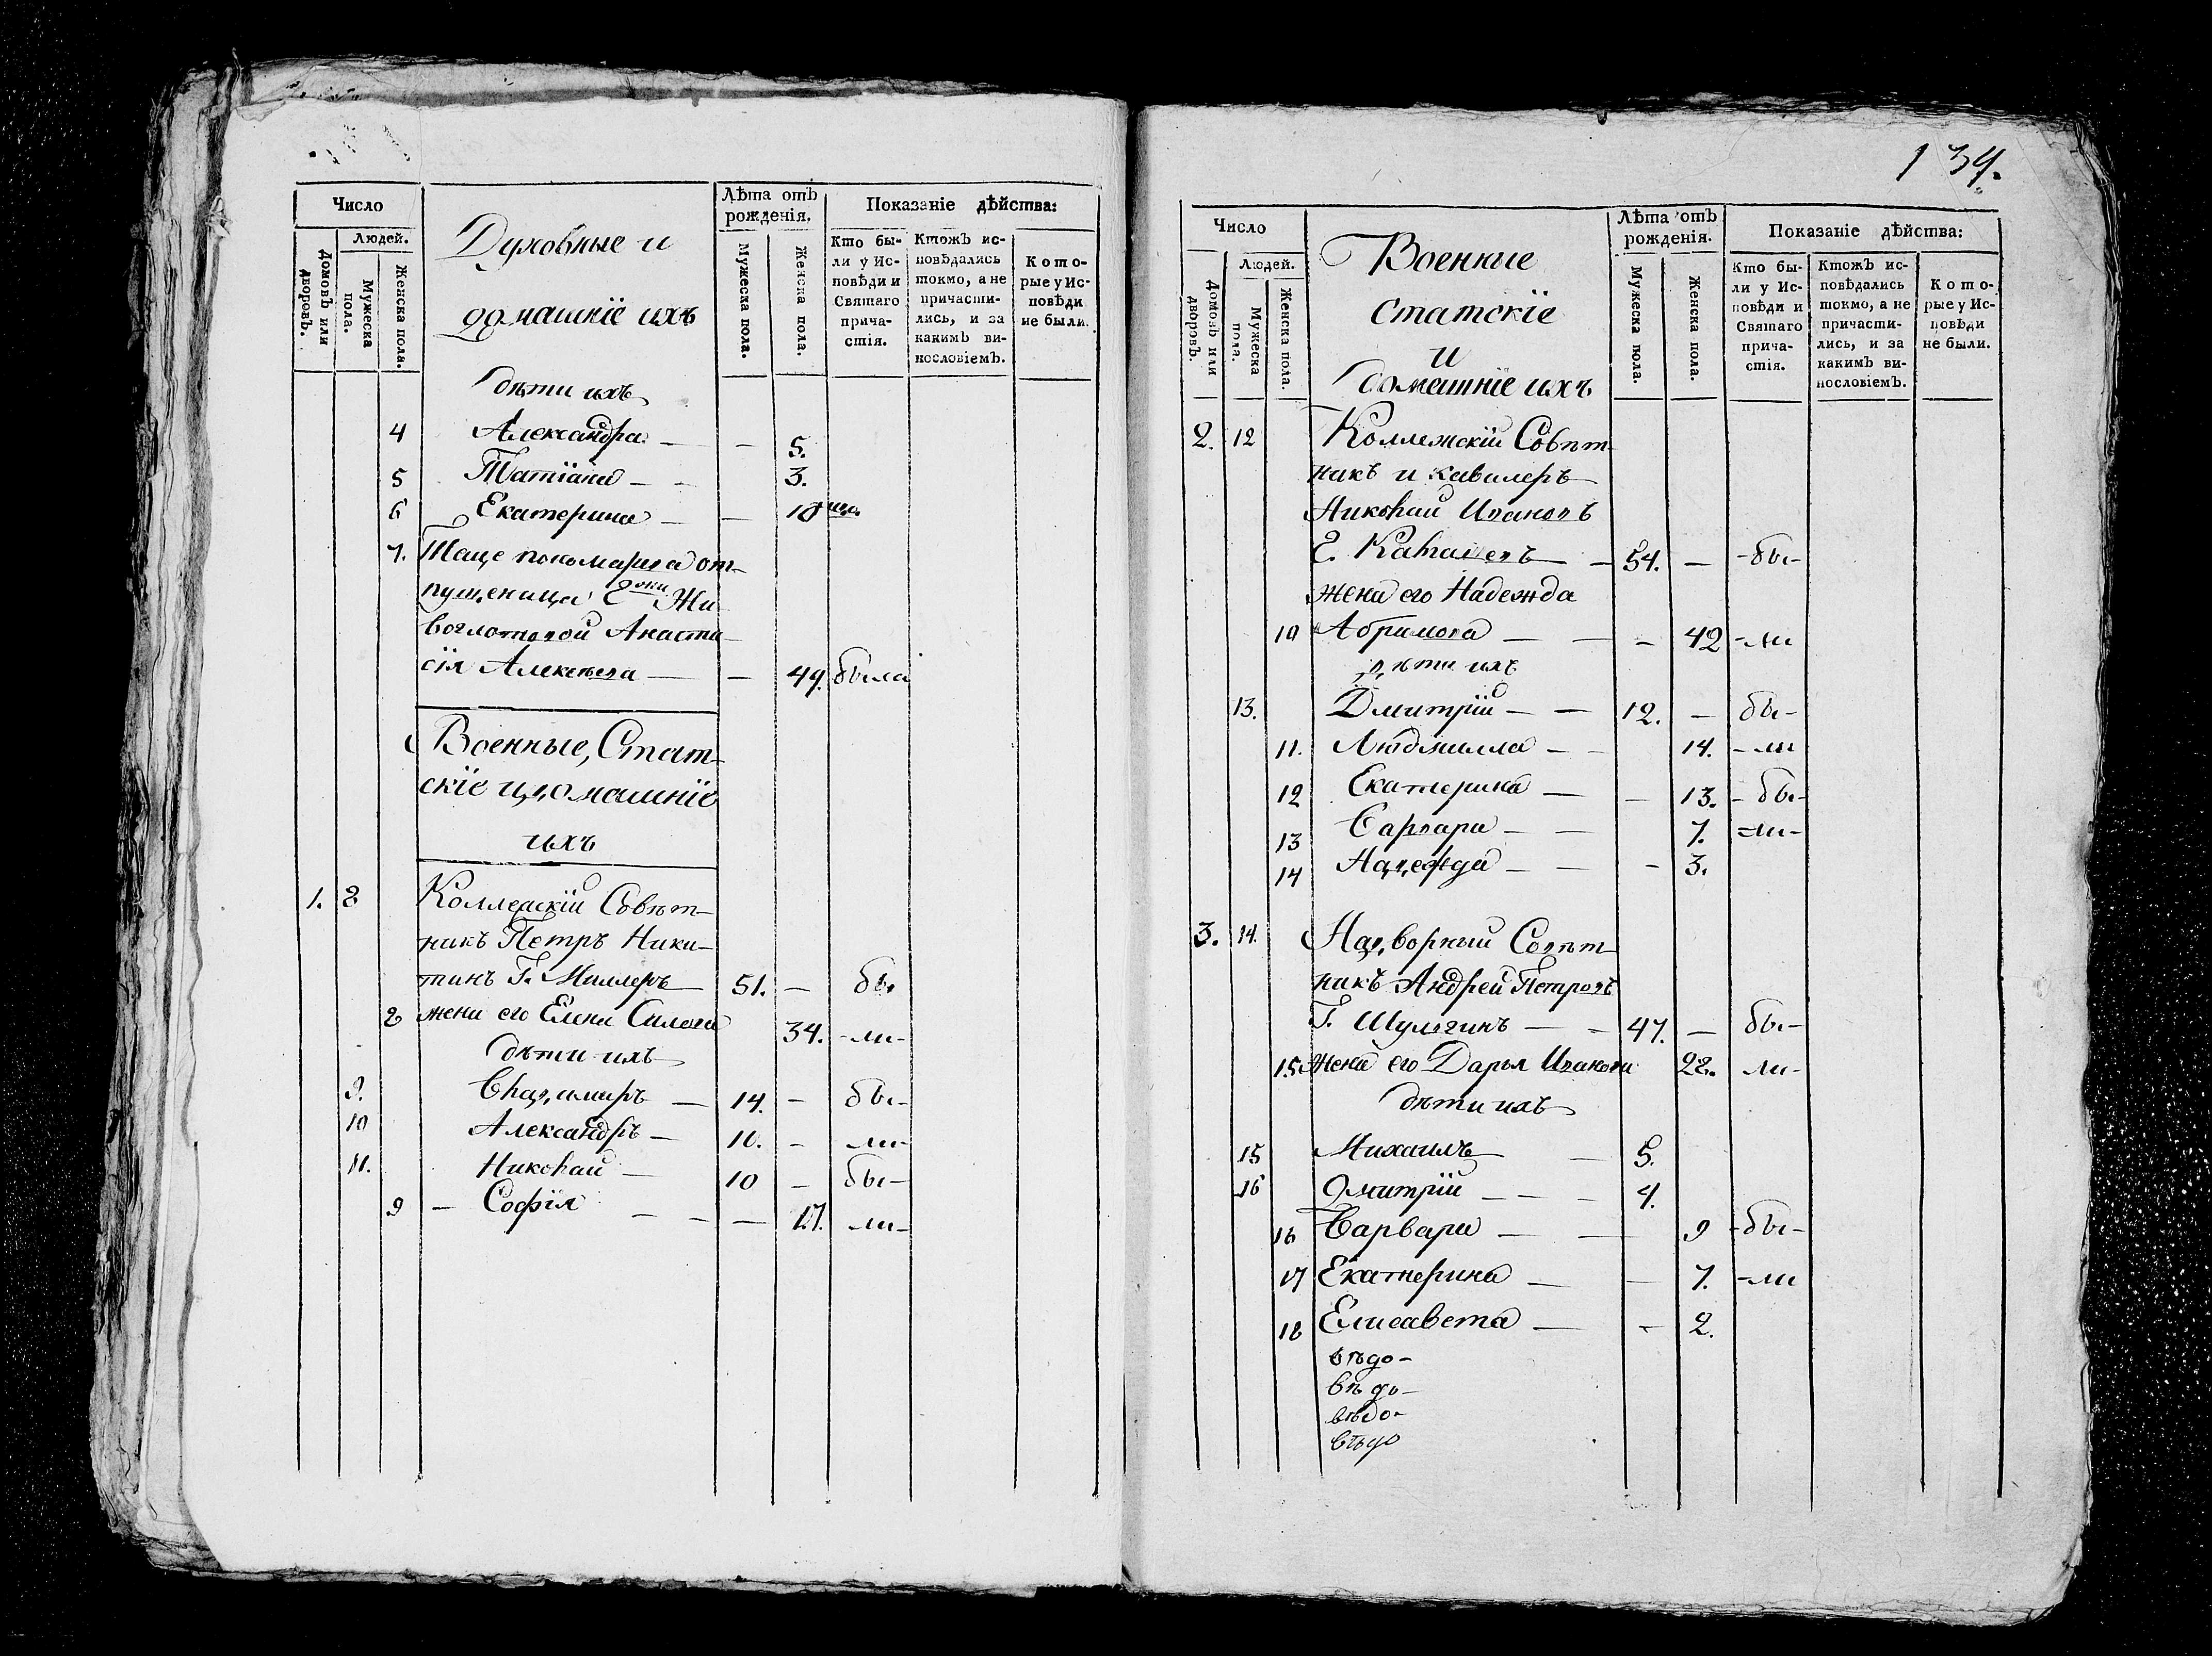 Число
Людей.
Домовъ или дворовъ.
Мужеска пола.
Женска пола.
Духовные и
домашніе ихъ
Лѣта отъ рожденія.
Мужеска пола.
Женска пола.
Показаніе дѣйства:
Кто были у Исповѣди и Святаго причастія.
Ктожъ исповѣдались токмо, а не причастились, и за какимъ винословіемъ.
Которые у Исповѣди не были.
дѣти ихъ
4 Александра — — 5.
5 Татіана — — 3.
6 Екатерина — — 10
7. Таже пономарша от-
пущеница Жи
воглотовой Анаста-
сія Алексѣева — — 49. была
Военные, Стат-
скіе и домашніе
ихъ
1. 8 Коллежскій Совѣт-
никъ Петръ Ники-
тинъ Г. Миллеръ 51. — бы
8 жена его Елена Силова 34. -ли-
дѣти ихъ
9. Владимиръ — 14. — бы-
10 Александръ — 10. - ли-
11. Николай — 10 — бы-
9 — Софія — — — 17. ли-
134.
Число
Людей.
Домовъ или дворовъ.
Мужеска пола.
Женска пола.
Военные
Статскіе
и
домашніе ихъ
Лѣта отъ рожденія.
Мужеска пола.
Женска пола.
Показаніе дѣйства:
Кто были у Исповѣди и Святаго причастія.
Ктожъ исповѣдались токмо, а не причастились, и за какимъ винословіемъ.
Которые у Исповѣди не были.
2. 12 Коллежскій Совѣт-
никъ и кавалеръ
Николай Ивановъ
54. — -бы-
жена его Надежда
10 Абрамова — — - 42 -ли
дѣти ихъ
13. Дмитрій — — 12. — бы-
11. Людмилла — - 14. -ли
12 Екатерина — — 13. - бы-
13 Варвара — — 7. -ли-
14 Надежда — — - 3.
3. 14. Надворный Совѣт-
никъ Андрей Петровъ
Г. Шулгинъ — - 47. — бы-
15 жена его Дарья Иванова 22. ли-
дѣти ихъ
15 Михаилъ — 5.
16 Дмитрій — - - 4.
16 Варвара — — 9 -бы-
17 Екатерина — — 7. -ли
18 Елисавета — - 2.
вѣдо-
вѣдо-
вѣдо-
вѣдо